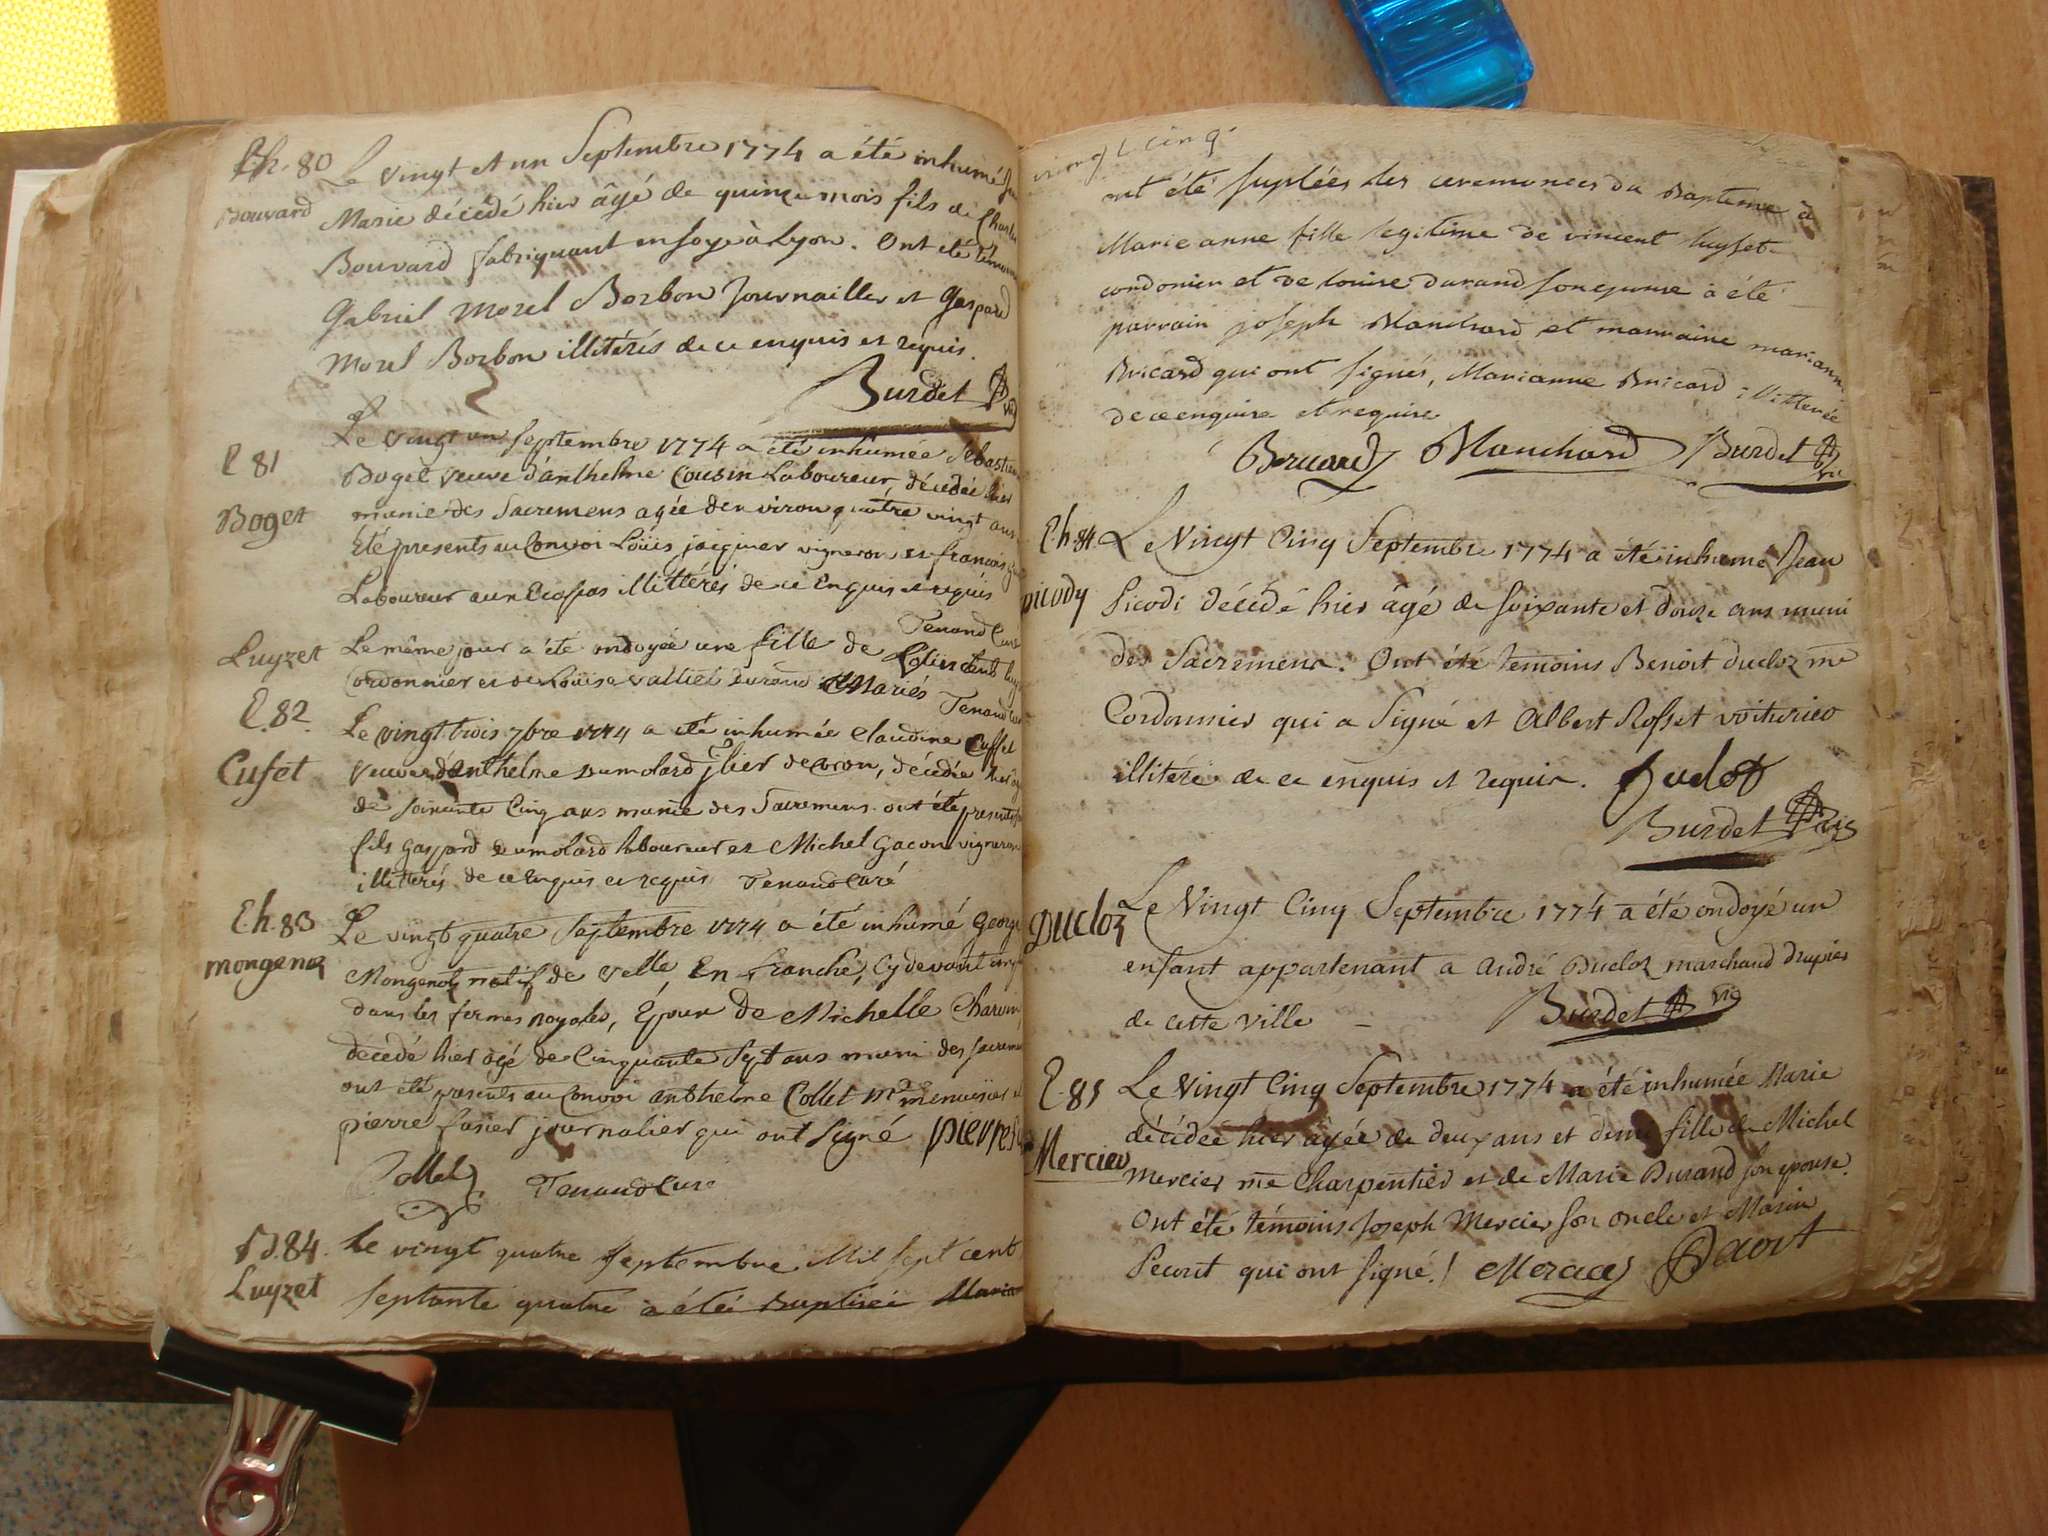 Eh. 80
Bouvard
Le vingt et un Septembre 1774 a été inhumé
Marie décédé hier âgé de quinze mois fils de Charles
Bouvard fabriquant en soye à Lyon. Ont été témoins
Gabriel Morel Borbon Journaillier et Gaspard
Morel Borbon illitérés de ce enquis et requis.
Burdet vic
E 81
Boget
Le vingt un Septembre 1774 a été inhumée Sébastienne
Boget veuve d'anthelme Cousin Laboureur, décédée hier
munie des Sacremens agée denviron quatre vingt ans
Eté presents au Convoi Loüis jacquier vigneron et francois
Laboureur aux Ecassas illittérés de ce Enquis et requis
Tenand Curé
Luyzet
Le même jour a été ondoyée une fille de Vincent Luyzet
Cordonnier et de Loüise durand Mariés
Tenand Curé
E. 82
Cufet
Le vingt trois 7bre 1774 a été inhumée Claudine Cuffet
veuve d'anthelme dumolard de bron, décédée hier
de soixante Cinq ans munie des Sacremens. ont été presents
fils Gaspard dumolard laboureur et Michel Gacon vigneron
illittérés de ce Enquis et requis Tenand Curé
Eh. 83
mongenoz
Le vingt quatre Septembre 1774 a été inhumé George
Mongenoz natif de velle En franche, Cy devant
dans les fermes royales, Epoux de Michelle Charvin
décédé hier agé de Cinquante Sept ans muni des sacremens
ont été presents au Convoi anthelme Collet me menuisier et
pierre fusier journalier qui ont Signé pierre
Collet Tenand Curé
B. 84.
Luyzet
Le vingt quatre Septembre Mil sept cent
septante quatre a été Baptisée Maria
vingt cinq
ont été suplées les ceremonies du Bapteme à
Marie anne fille legitime de vincent luyset
cordonier et de louise durand son epouse a été
parrain joseph Blanchard et marraine mariann
Bricard qui ont signés, Marianne Bricard illitterée
de ce enquise et requise
Bruard Blanchard Burdet vic
Eh 84.
picody
Le Vingt Cinq Septembre 1774 a été inhumé Jean
Picodi décédé hier âgé de soixante et douze ans muni
des Sacremens. Ont été temoins Benoit ducloz me
Cordonnier qui a Signé et Albert Rosset voiturier
illiteré de ce enquis et requis. Duclos
Burdet vic
Ducloz
Le Vingt Cinq Septembre 1774 a été ondoyé un
enfant appartenant a André Ducloz marchand drapier
de cette ville – Burdet vic
E. 85
Mercier
Le Vingt Cinq Septembre 1774 a été inhumée Marie
décédée hier âgée de deux ans et demi fille de Michel
Mercier me Charpentier et de Marie Durand son epouse.
Ont été témoins Joseph Mercier son oncle et Marin
Pecout qui ont signé. Mercier Pecout